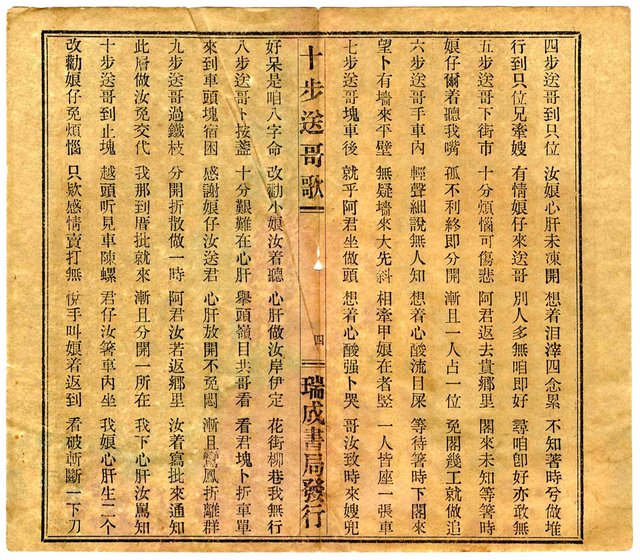 四步送哥到只位 汝娘心肝未凍開 想着泪滓四念累 不知著時兮做堆
行到只位兄牽嫂 有情娘仔來送哥 別人多無咱即好 尋咱卽好亦敢無
五步送哥下街市 十分煩惱可傷悲 阿君返去貴鄉里 閣來未知等箸時
娘仔爾着聽我嘴 孤不利終即分開 漸且一人占一位 免閣幾工就做追
六步送哥手車內 輕聲細說無人知 想着心酸流目屎 等待箸時下閣來
望卜有墻來平壁 無疑墻來大先斜 相牽甲娘在者竪 一人皆座一張車
七步送哥塊車後 就乎阿君坐做頭 想着心酸强卜哭 哥汝致時來嫂兜
十步送哥歌 四 瑞成書局發行
好呆是咱八字命 改勸小娘汝着聽 心肝做汝岸伊定 花街柳巷我無行
八步送哥卜按盞 十分艱難在心肝 舉頭嶺日共哥看 看君塊卜折車單
來到車頭塊宿困 感謝娘仔汝送君 心肝放開不免悶 漸且鸞鳳折離群
九步送哥過鐵枝 分開折散做一時 阿君汝若返鄉里 汝着寫批來通知
此層做汝免交代 我那到厝批就來 漸且分開一所在 我下心肝汝罵知
十步送哥到止塊 越頭听見車陳螺 君仔汝箸車內坐 我娘心肝生二个
改勸娘仔免煩惱 只欵感情賣打無 悅手叫娘着返到 看破斬斷一下刀